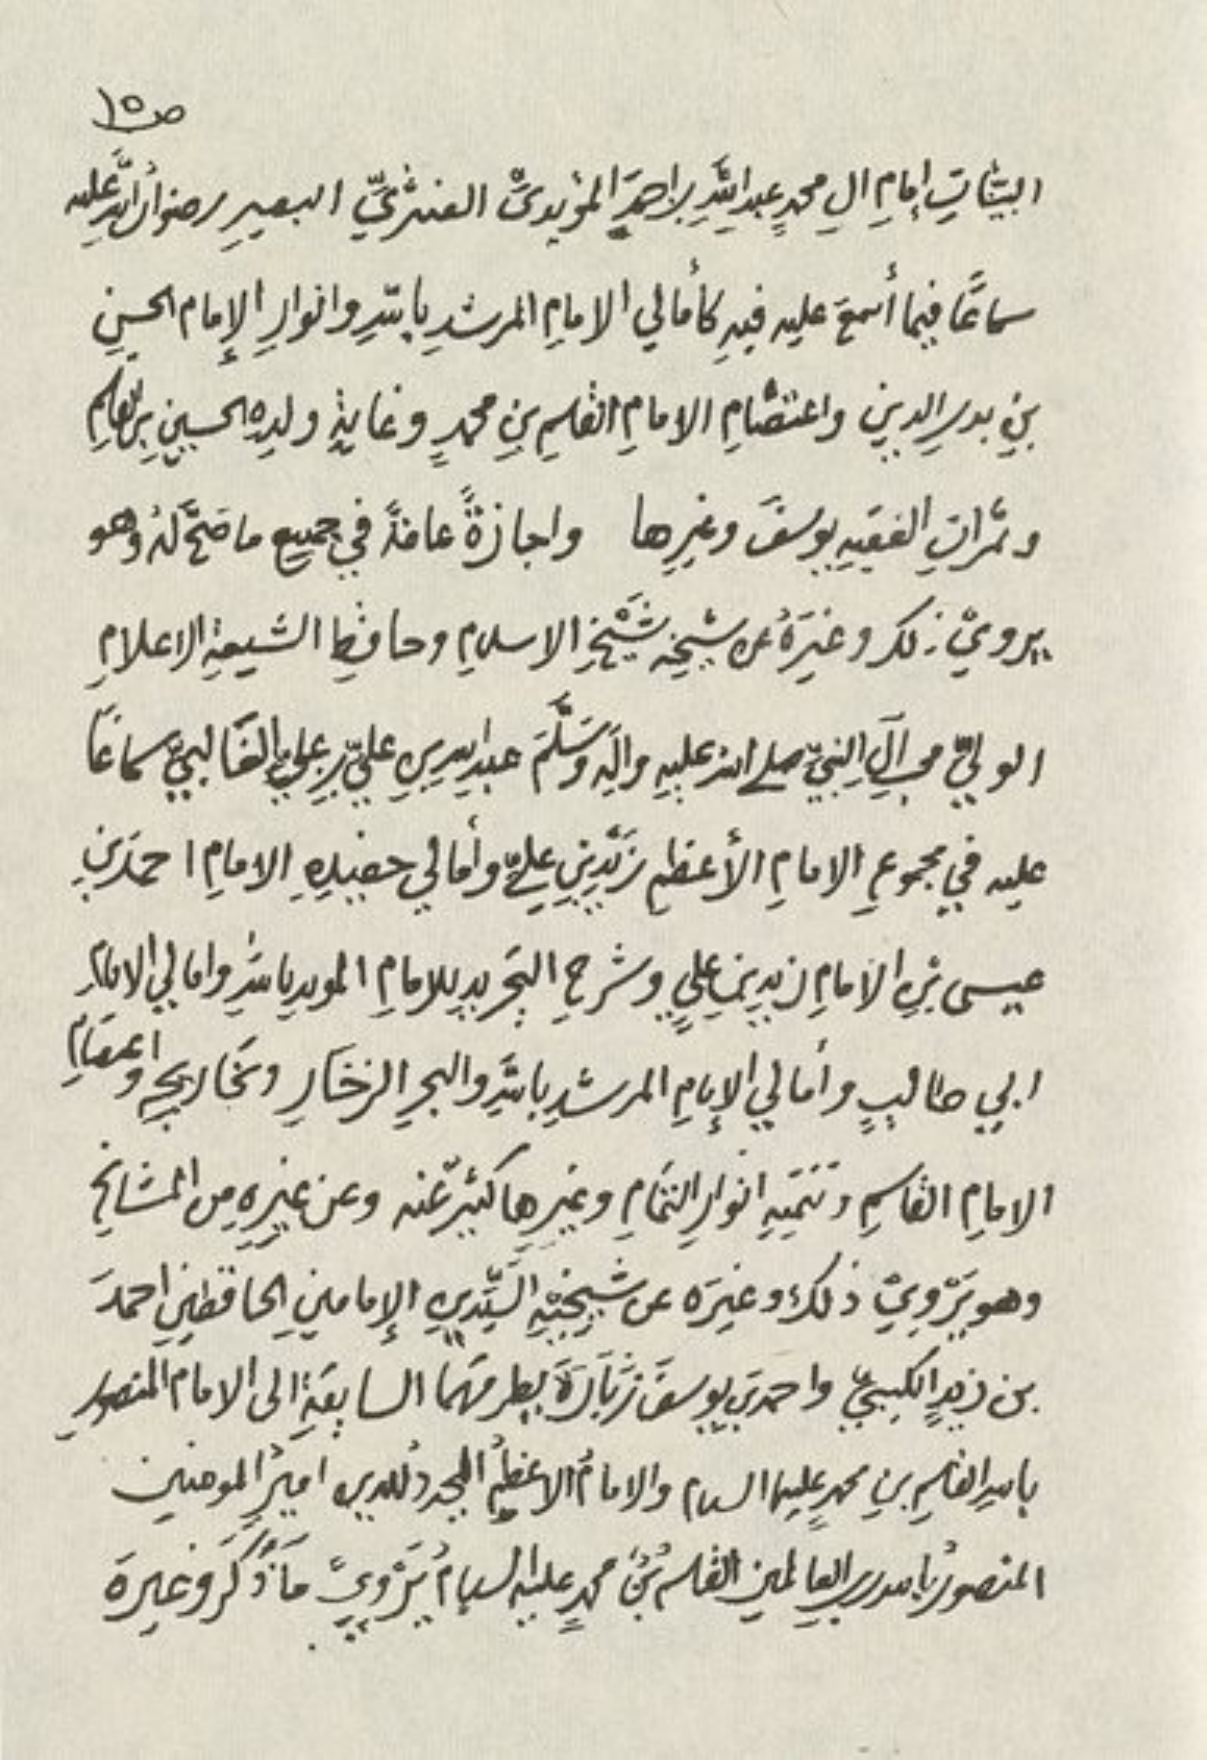 ص١٥
البيّنات إمامِ الِ محمدٍ عبدِ اللهِ بنِ احمدَ المؤيديّ العنثريّ البصيرِ رضوانُ اللهِ عليه
سماعًا فيما أُسمعَ عليه فيهِ كأمالي الامامِ المرشدِ باللهِ وانوارِ الإمام الحسنِ
بنِ بدرِ الدينِ واعتصامِ الامامِ القاسمِ بنِ محمدٍ وغايةِ ولدِهِ الحسينِ بنِ القاسمِ
وثمراتِ الفقيهِ يوسفَ وغيرِها واجازةً عامةً في جميع ما صَحَّ لهُ وهو
يروي ذلك وغيرَهُ عن شيخِهِ شَيْخِ الاسلامِ وحافظِ الشيعةِ الاعلامِ
الوليّ محبِ آلِ النبيّ صلى الله عليهِ والِهِ وَسَلَّمَ عبدِ اللهِ بنِ عليّ بنِ عليٍ الغَالبيّ سماعًا
عليه في مجموعِ الامامِ الأعظمِ زَيْدِ بنِ عليٍّ وأمالي حفيدِهِ الامامِ احمدَ بنِ
عيسى بنِ الامامِ زيدِ بنِ عليٍ وشرحِ التجريدِ للامامِ المويدِ باللهِ وامالي الامامِ
ابي طالبٍ وأمالي الإمامِ المرشدِ باللهِ والبحرِ الزخّارِ وتخاريجِهِ واعتصامِ
الامامِ القاسمِ وتَتمتِهِ انوارِ التمَامِ وغيرِها كثيرٌ عنه وعن غيرِهِ مِن المشايخِ
وهو يَرْوِيْ ذلك وغيرَه عن شيخَيْهِ السَّيِّدينِ الإمامينِ الحافظينِ احمدَ
بن زيدٍ الكبسيّ واحمدَ بنِ يوسفَ زَبَارَةَ بطرقهما السابقةِ الى الامام المنصورِ
باللهِ القاسمِ بنِ محمدٍ عليهما السلام والامامُ الاعظمُ المجددُ للدين اميرُ المومنين
المنصورُ باللهِ ربِ العالمين القاسمُ بْنُ محمدٍ عليه السلامُ يَرْوِيْ مَا ذُكِرَ وغيرَهُ